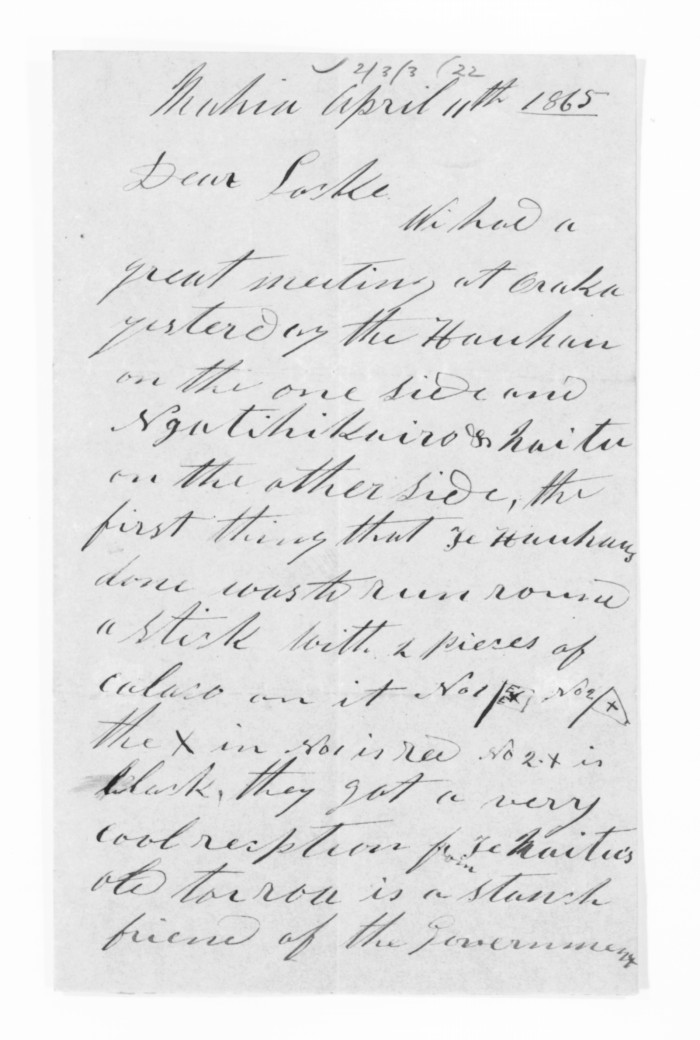 2/3/3 (22
Mahia April 11th 1865
Dear Locke
We had a
great meeting at Oraka
yesterday the Hauhau
on the one side and
Ngatihikairo &
on the other side, the
first thing that ye Hauhaus
done was to run round
a stick with 2 pieces of
calaco on it No1 No2
the X in No1 is red No 2 X is
black, they got a very
cool reception from ye
old is a stanch
friend of the Government